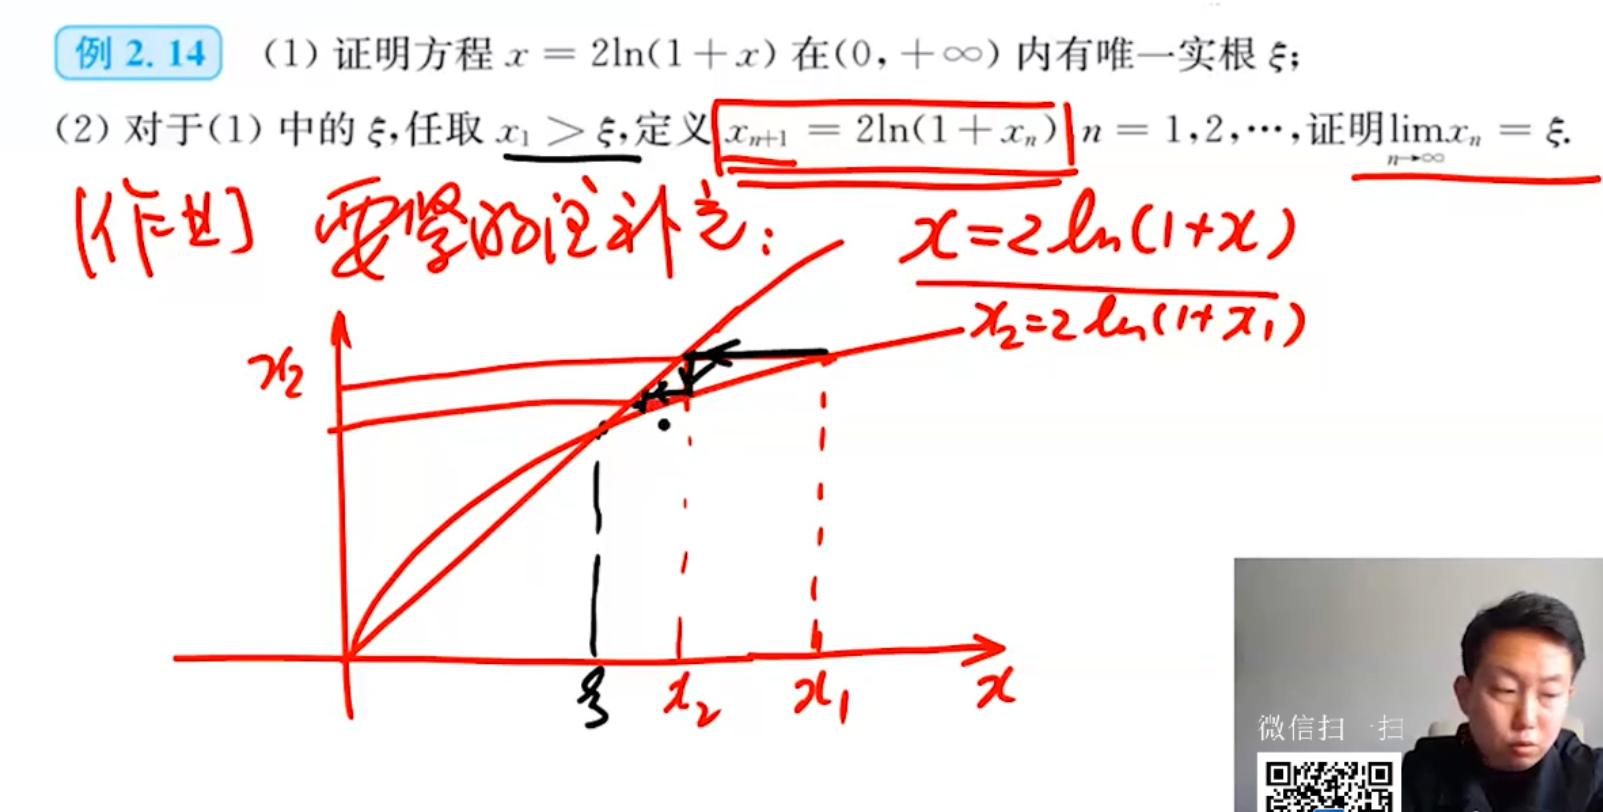 例 2.14 (1) 证明方程 x = 2ln(1+x) 在(0, +∞) 内有唯一实根 ξ;
(2) 对于(1) 中的 ξ,任取 x₁ > ξ,定义 xₙ₊₁ = 2ln(1+xₙ) n = 1,2,⋯,证明 lim xₙ = ξ.
n→∞
[作业] 要紧的注补充: x=2ln(1+x)
x₂=2ln(1+x₁)
x₂
ξ x₂ x₁ x
微信扫一扫